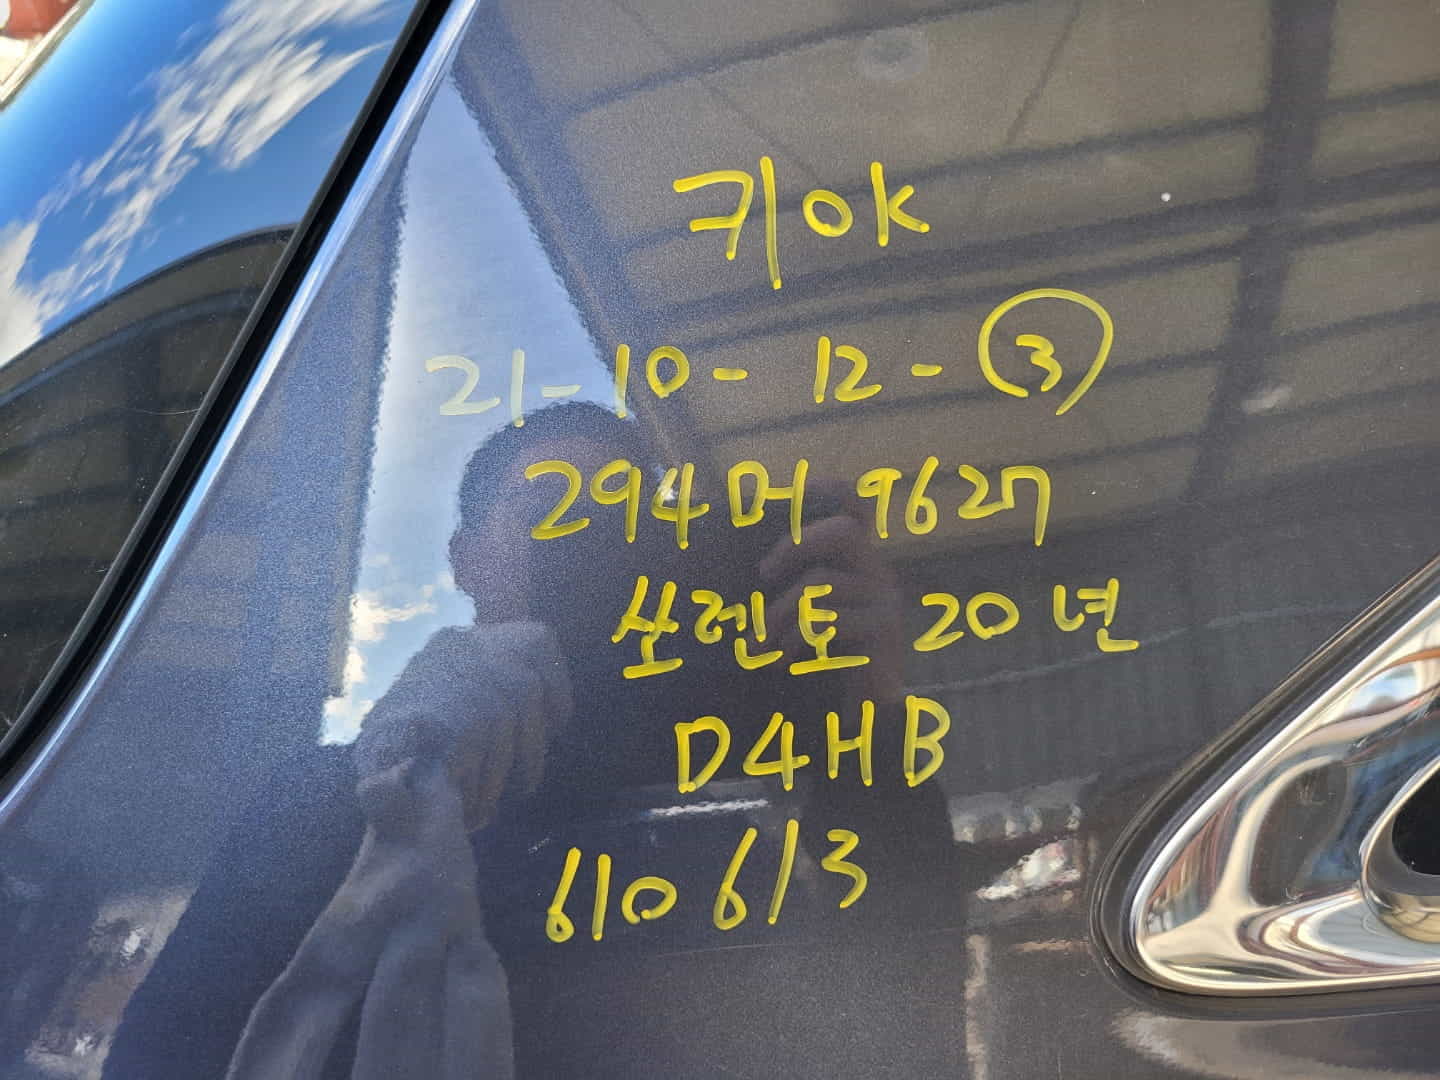 키OK
21-10-12-③
294머 9627
쏘렌토 20년
D4HB
610 613